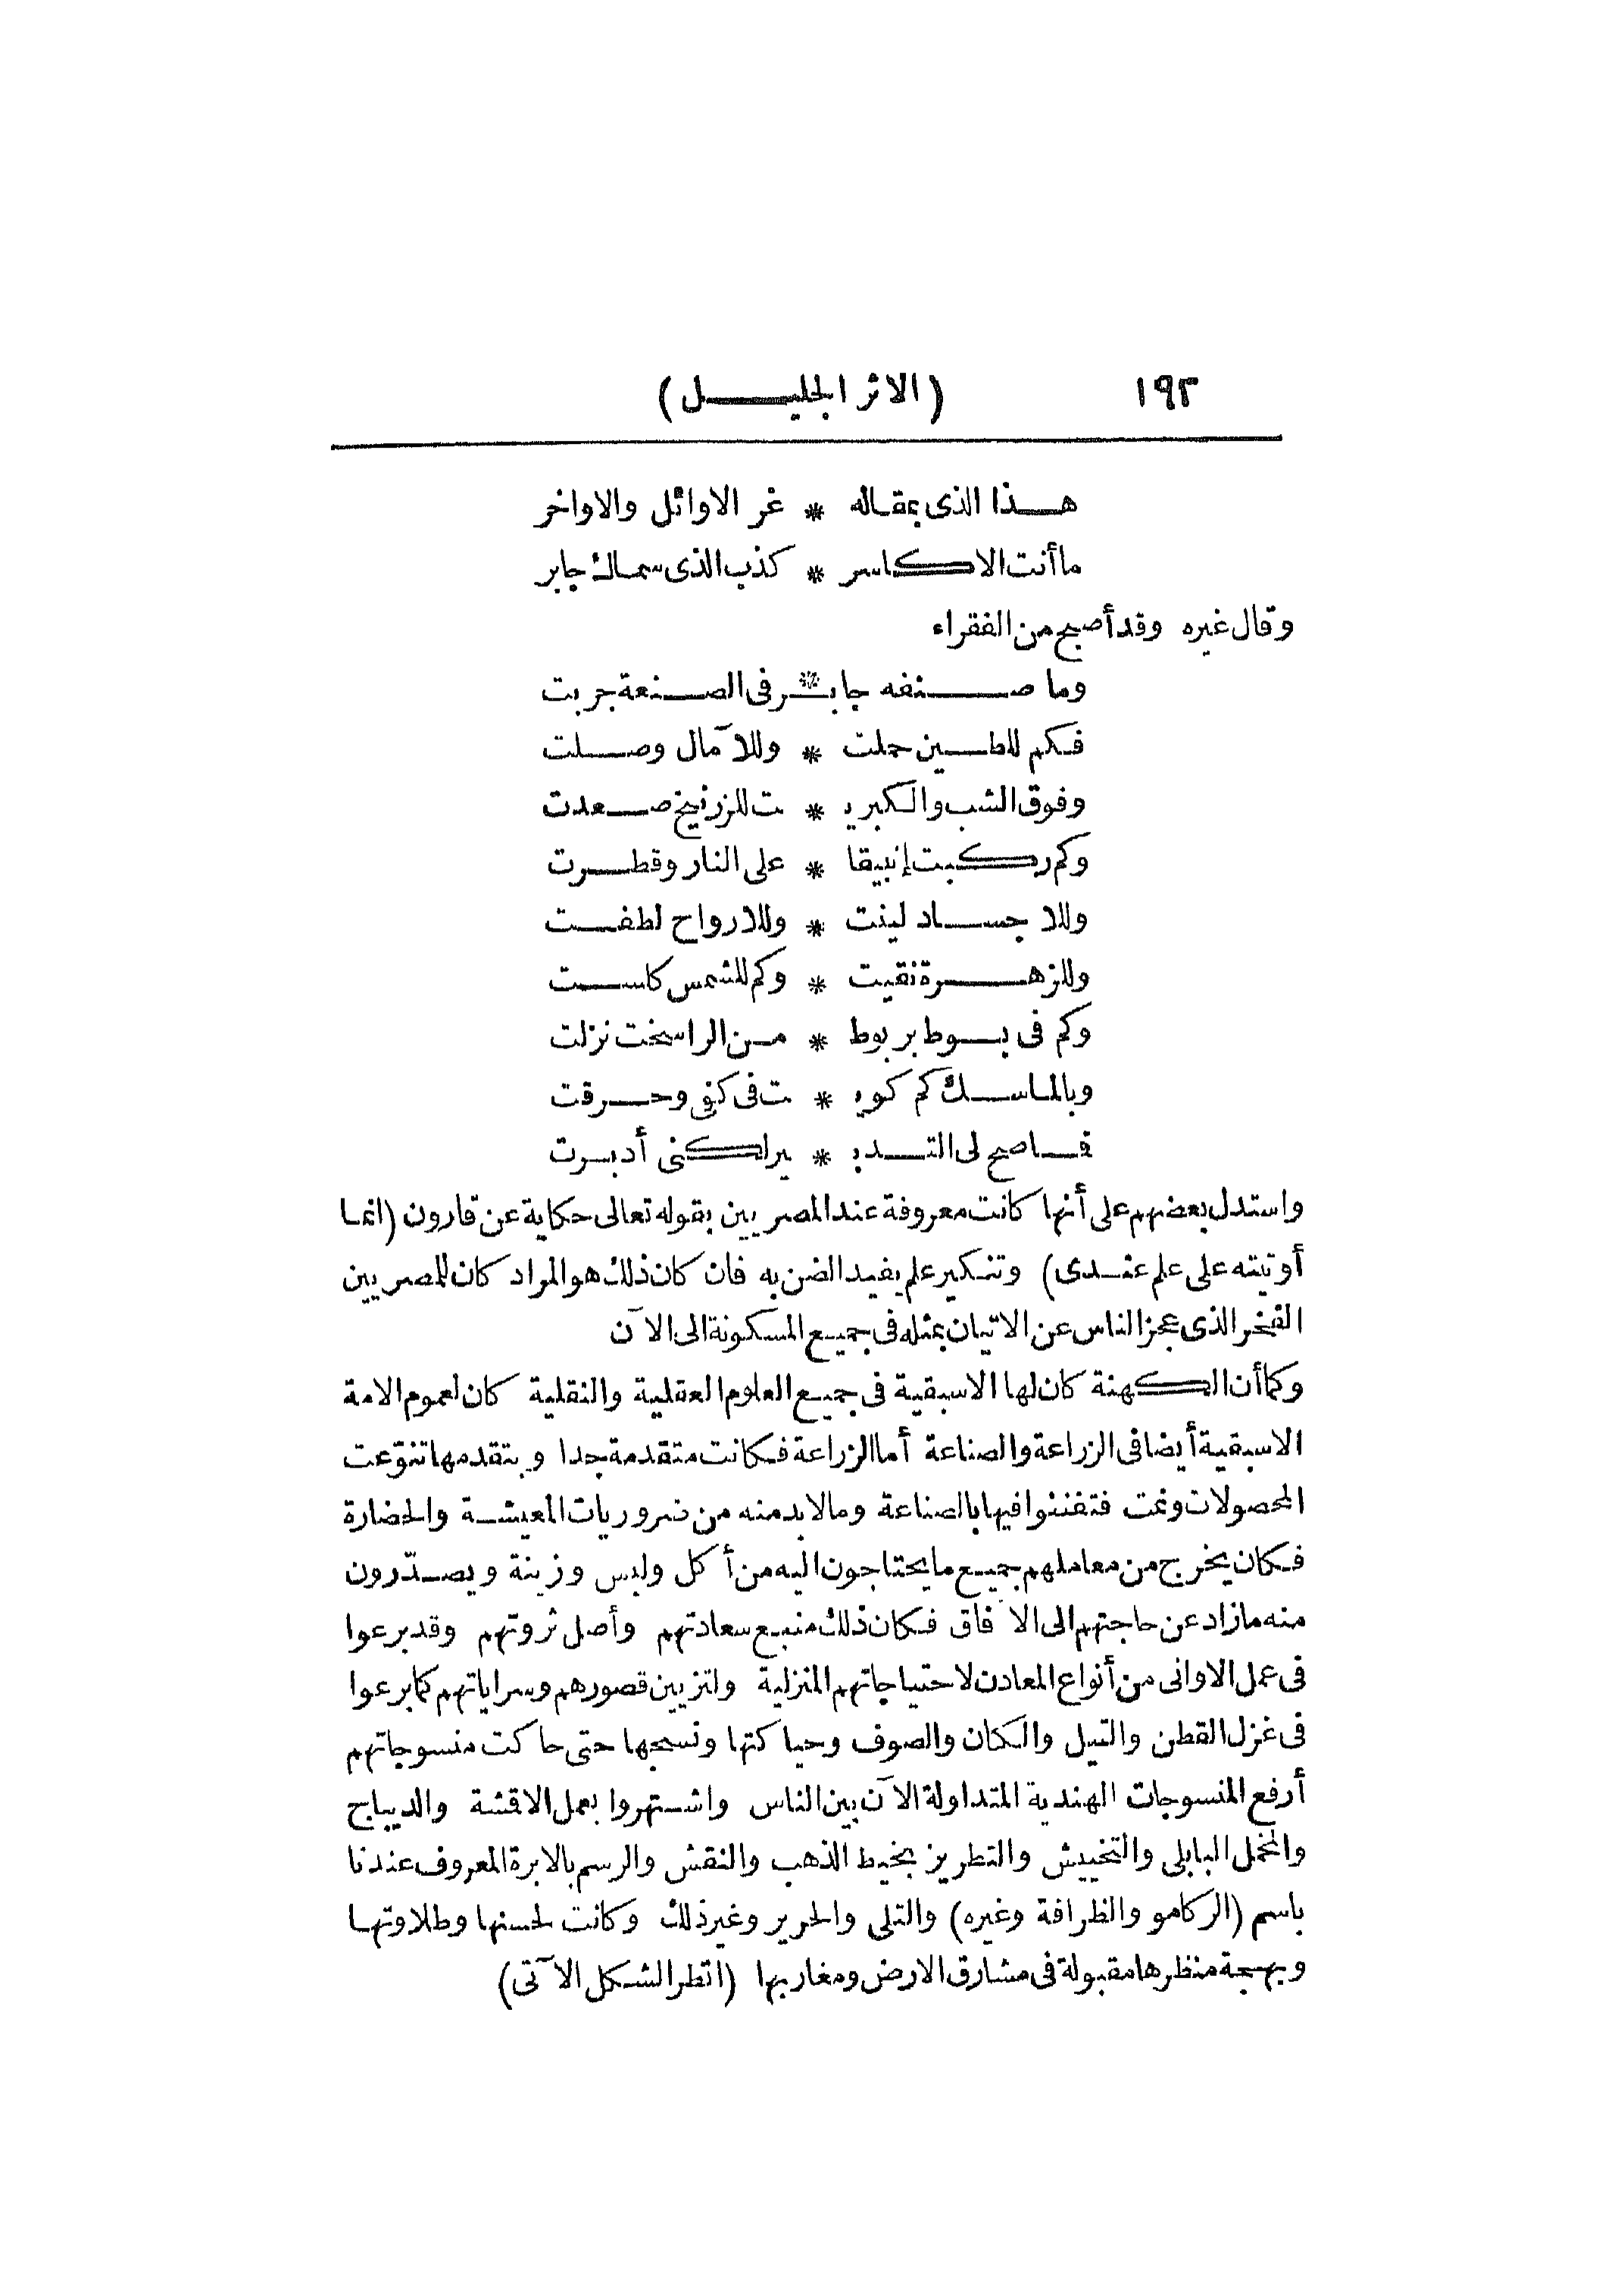 ١٩٢ (الاثر الجليل)
هذا الذى بمقاله * غر الاوائل والاواخر
ما أنت الا كاسر * كذب الذى سماك جابر
وقال غيره وقد أصبح من الفقراء
وما صنفه جابر * فى الصنعة جربت
فكم للطين حملت * وللآمال وصلت
وفوق الشب والكبريـ * ـت للزرنيخ صعدت
وكم ركبت إنبيقا * على النار وقطرت
وللاجساد لينت * وللارواح لطفت
وللزهرة نقيت * وكم للشمس كاست
وكم فى بوط بربوط * من الراسخت نزلت
وبالماسك كم كويـ * ـت فى كفى وحرقت
فاصح لى التدبـ * ـير لكنى أدبرت
واستدل بعضهم على أنها كانت معروفة عند المصريين بقوله تعالى حكاية عن قارون (انما
أوتيته على علم عندى) وتنكير علم يفيد الضن به فان كان ذلك هو المراد كان للمصريين
الفخر الذى عجز الناس عن الاتيان بمثله فى جميع المسكونة الى الآن
وكما أن الكهنة كان لها الاسبقية فى جميع العلوم العقلية والنقلية كان لعموم الامة
الاسبقية أيضا فى الزراعة والصناعة أما الزراعة فكانت متقدمة جدا وبتقدمها تنوّعت
المحصولات ونمت فتفننوا فيها بالصناعة ومالابد منه من ضروريات المعيشة والحضارة
فكان يخرج من معاملهم جميع ما يحتاجون اليه من أكل ولبس وزينة ويصدّرون
منه مازاد عن حاجتهم الى الآفاق فكان ذلك منبع سعادتهم وأصل ثروتهم وقد برعوا
فى عمل الاوانى من أنواع المعادن لاحتياجاتهم المنزلية ولتزيين قصورهم وسراياتهم كما برعوا
فى غزل القطن والتيل والكتان والصوف وحياكتها ونسجها حتى حاكت منسوجاتهم
أرفع المنسوجات الهندية المتداولة الآن بين الناس واشتهروا بعمل الاقشة والديباج
والمخمل البابلى والتخييش والتطريز بخيط الذهب والنقش والرسم بالابرة المعروف عندنا
باسم (الركامو والظرافة وغيره) والتلى والحرير وغير ذلك وكانت لحسنها وطلاوتها
وبهجة منظرها مقبولة فى مشارق الارض ومغاربها (انظر الشكل الآتى)